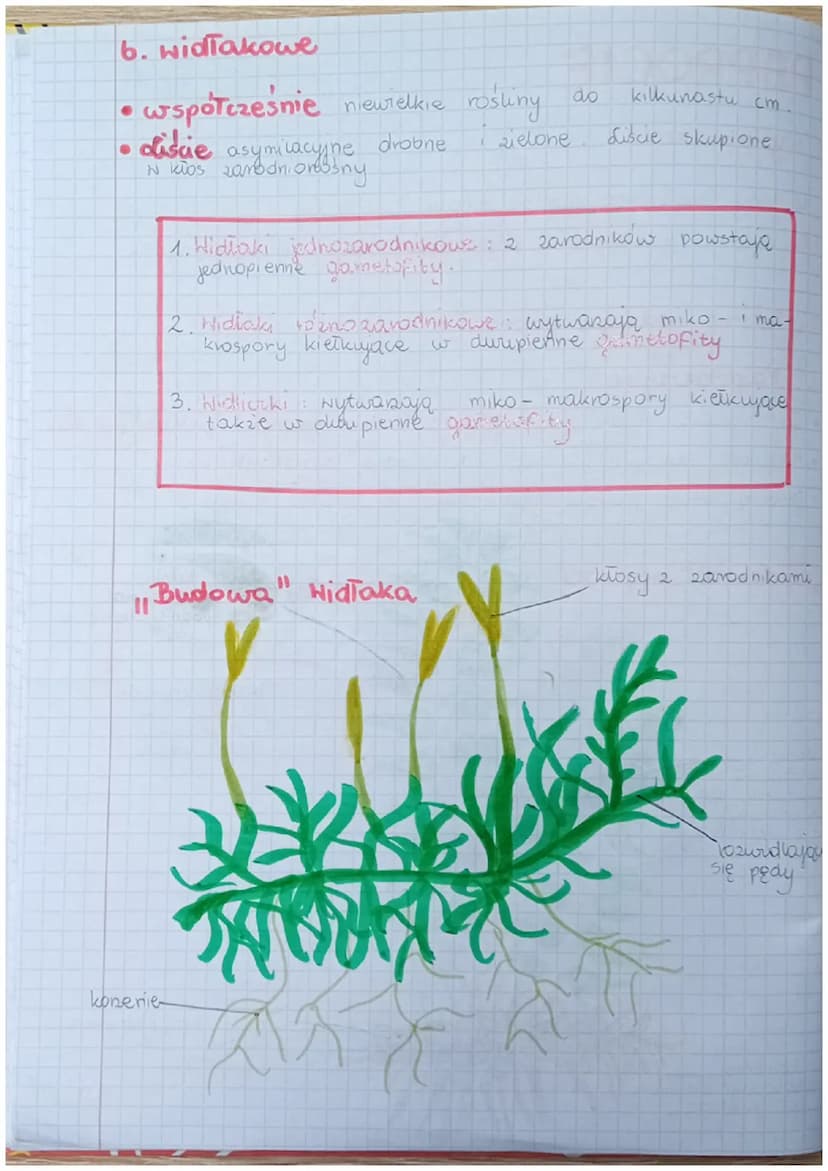 6. widłakowe
• współcześnie niewielkie rośliny do kilkunastu cm.
• liście asymilacyjne drobne i zielone. Liście skupione
w kłos zarodnionośny
1. Widłaki jednozarodnikowe: z zarodników powstają
jednopienne gametofity.
2. Widłaki różnozarodnikowe: wytwarzają miko- i ma-
krospory kiełkujące w dwupienne gametofity
3. Widliczki: wytwarzają miko- makrospory kiełkujące
także w dwupienne gametofity
„Budowa" widłaka
kłosy z zarodnikami
rozwidlające
się pędy
korzenie